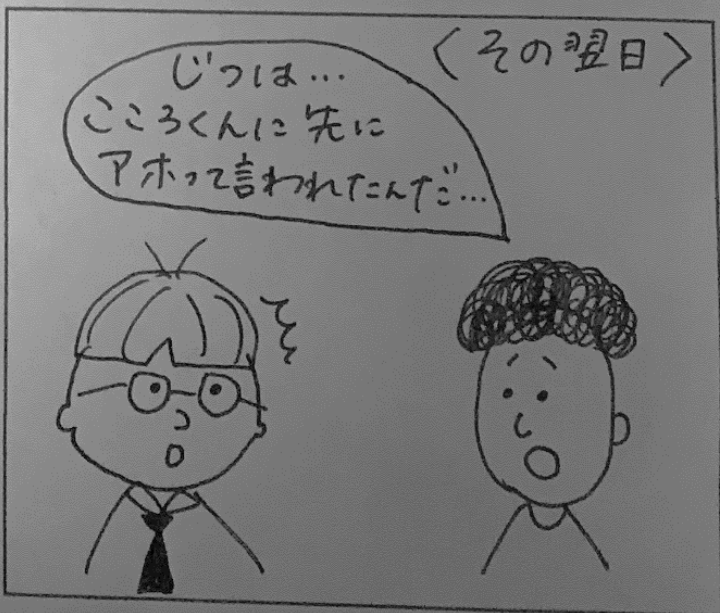 〈その翌日〉
じつは…
こころくんに先に
アホって言われたんだ…